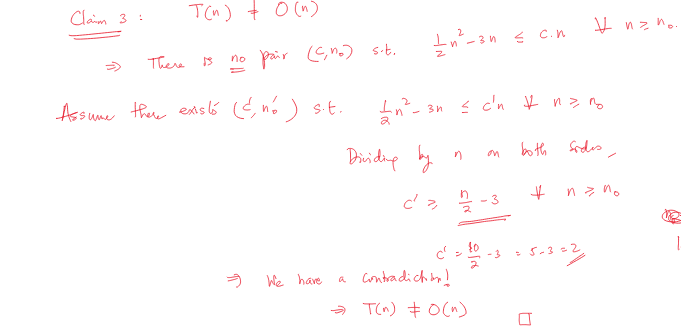 Claim 3 : T(n) ≠ O(n)
⇒ There is no pair (c, n₀) s.t. 1/2 n² - 3n ≤ c.n ∀ n ≥ n₀.
Assume there exists (c', n₀') s.t. 1/2 n² - 3n ≤ c'n ∀ n ≥ n₀
Dividing by n on both sides,
c' ≥ n/2 - 3 ∀ n ≥ n₀
c' = 10/2 - 3 = 5-3 = 2
⇒ We have a contradiction!
⇒ T(n) ≠ O(n) □